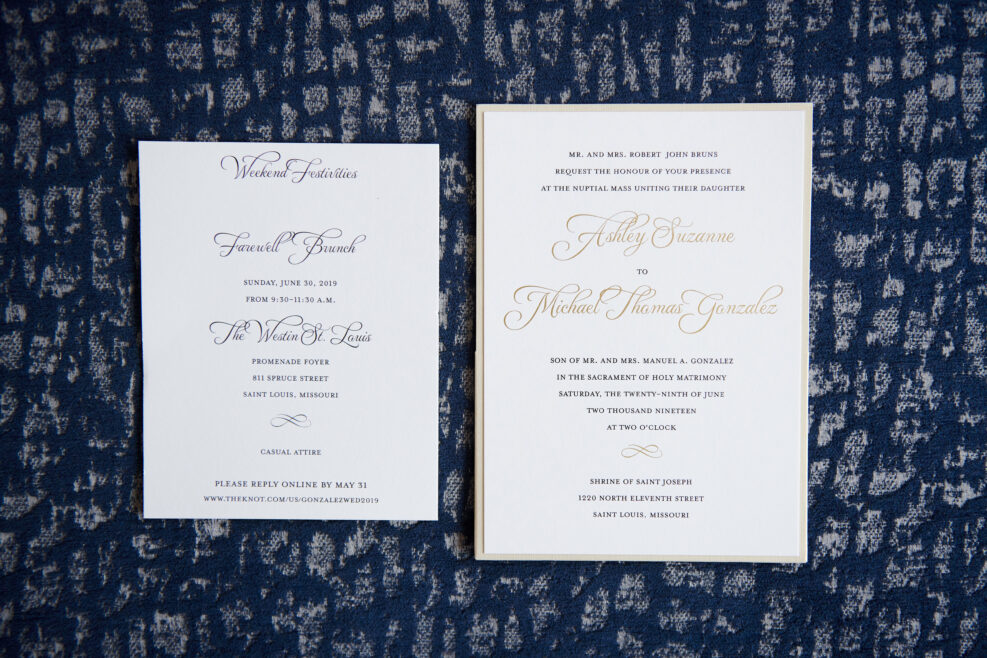 Weekend Festivities
Farewell Brunch
SUNDAY, JUNE 30, 2019
FROM 9:30–11:30 A.M.
The Westin St. Louis
PROMENADE FOYER
811 SPRUCE STREET
SAINT LOUIS, MISSOURI
CASUAL ATTIRE
PLEASE REPLY ONLINE BY MAY 31
WWW.THEKNOT.COM/US/GONZALEZWED2019
MR. AND MRS. ROBERT JOHN BRUNS
REQUEST THE HONOUR OF YOUR PRESENCE
AT THE NUPTIAL MASS UNITING THEIR DAUGHTER
Ashley Suzanne
TO
Michael Thomas Gonzalez
SON OF MR. AND MRS. MANUEL A. GONZALEZ
IN THE SACRAMENT OF HOLY MATRIMONY
SATURDAY, THE TWENTY-NINTH OF JUNE
TWO THOUSAND NINETEEN
AT TWO O'CLOCK
SHRINE OF SAINT JOSEPH
1220 NORTH ELEVENTH STREET
SAINT LOUIS, MISSOURI